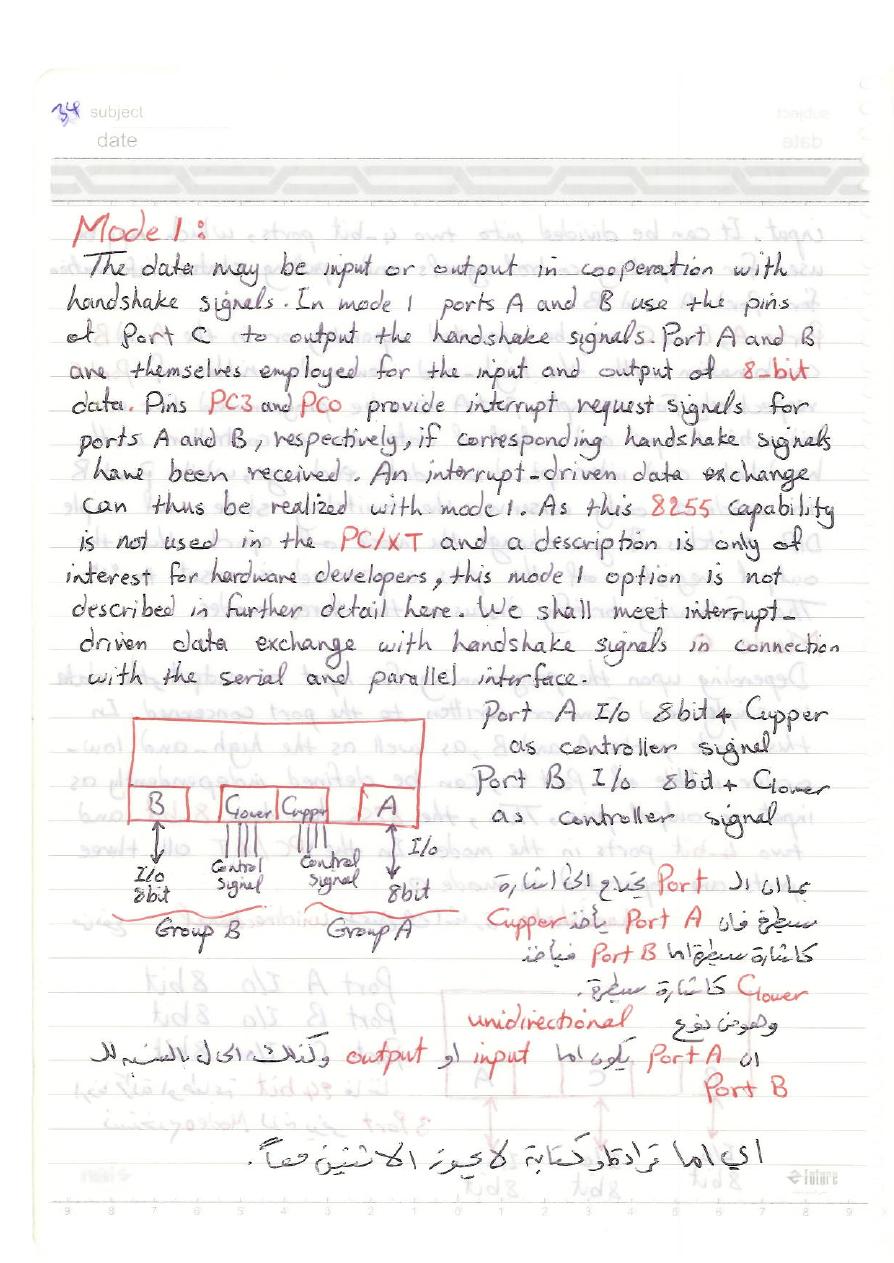 34 subject
date
Mode 1:
The data may be input or output in cooperation with
handshake signals. In mode 1 ports A and B use the pins
of Port C to output the handshake signals. Port A and B
are themselves employed for the input and output of 8-bit
data. Pins PC3 and PC0 provide interrupt request signals for
ports A and B, respectively, if corresponding handshake signals
have been received. An interrupt-driven data exchange
can thus be realized with mode 1. As this 8255 capability
is not used in the PC/XT and a description is only of
interest for hardware developers, this mode 1 option is not
described in further detail here. We shall meet interrupt-
driven data exchange with handshake signals in connection
with the serial and parallel interface.
Port A I/o 8bit + Cupper
as controller signal
Port B I/o 8bit + Clower
as controller signal
B Clower Cupper A
I/o 8bit
Control signal
Control signal
I/o 8bit
Group B Group A
بما ان الـ Port يحتاج الى اشارة
سيطرة فان Port A يأخذ Cupper
كاشارة سيطرة اما Port B فيأخذ
Clower كاشارة سيطرة.
وهو من نوع unidirectional
ان Port A يكون اما input او output وكذلك الحال بالنسبه للـ
Port B
اي اما قراءة او كتابة لا يجوز الاثنين معاً.
e future
9 8 7 6 5 4 3 2 1 0 1 2 3 4 5 6 7 8 9